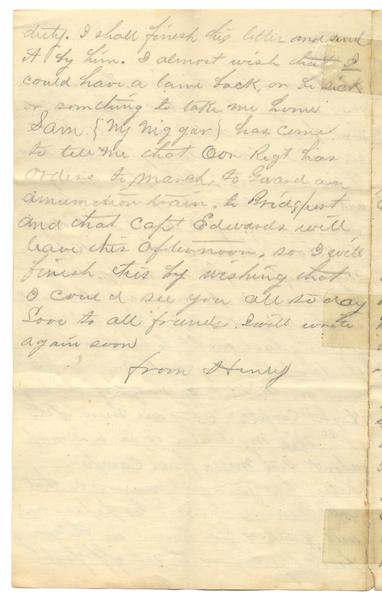 duty. I shall finish his letter and send
it by him. I almost wish that I
could have a lame back, or be sick
or somthing to take me home
Sam {My niggar} has come
to tell me that Our Regt has
orders to march, to Guard an
amunition train, to Bridgport
and that Capt Edwards will
leave this afternoon, so I will
finish this by wishing that
I could see you all to day
Love to all friends. I will write
again soon
from Henry